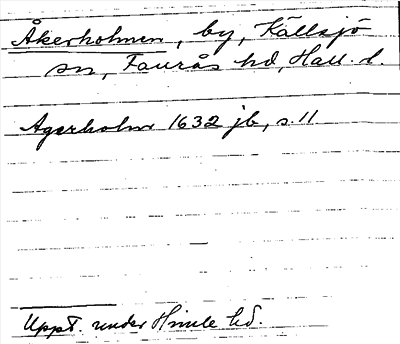 Åkerholmen, by, Källsjö
sn, Faurås hd, Hall. l.
Agerholm 1632 jb, s. 11
Uppt. under Himle hd.